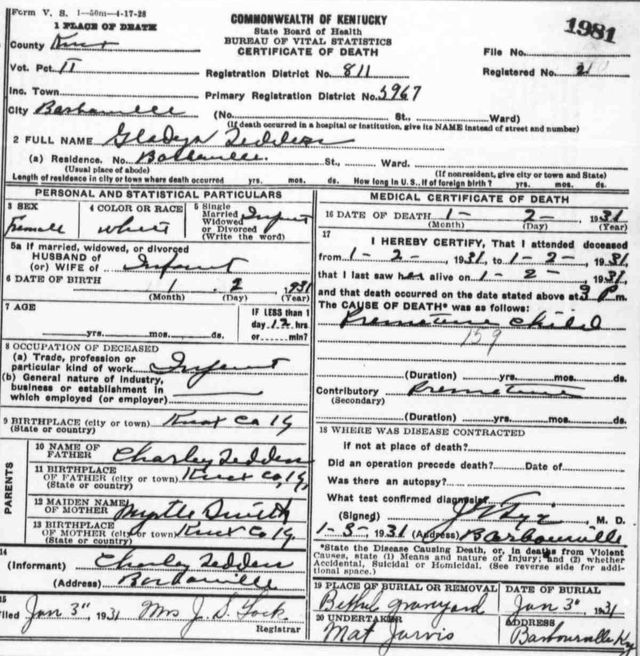 Form V. S. 1—50m—4-17-28
1 PLACE OF DEATH
COMMONWEALTH OF KENTUCKY
State Board of Health
BUREAU OF VITAL STATISTICS
CERTIFICATE OF DEATH
1981
County Knox
File No.
Vot. Pct. 11
Registration District No. 811
Registered No. 2
Inc. Town
Primary Registration District No. 5967
City Barbourville (No. St., Ward)
(If death occurred in a hospital or institution, give its NAME instead of street and number)
2 FULL NAME Gladys Tedders
(a) Residence. No. St., Ward.
(Usual place of abode) (If nonresident, give city or town and State)
Length of residence in city or town where death occurred yrs. mos. ds. How long in U. S., if of foreign birth? yrs. mos. ds.
PERSONAL AND STATISTICAL PARTICULARS
3 SEX Female
4 COLOR OR RACE White
5 Single Married Widowed or Divorced (Write the word) Infant
5a If married, widowed, or divorced
HUSBAND of
(or) WIFE of Infant
6 DATE OF BIRTH 1 2 1931
(Month) (Day) (Year)
7 AGE
IF LESS than 1
day 12 hrs
yrs. mos. ds. or min?
8 OCCUPATION OF DECEASED
(a) Trade, profession or
particular kind of work Infant
(b) General nature of industry,
business or establishment in
which employed (or employer)
9 BIRTHPLACE (city or town) Knox Co Ky
(State or country)
PARENTS
10 NAME OF
FATHER Charley Tedders
11 BIRTHPLACE
OF FATHER (city or town) Knox Co, Ky,
(State or country)
12 MAIDEN NAME
OF MOTHER Myrtle Smith
13 BIRTHPLACE
OF MOTHER (city or town) Knox Co Ky
(State or country)
14
(Informant) Charley Tedders
(Address) Barbourville
15
Filed Jan 3" 1931 Mrs J. S.
Registrar
MEDICAL CERTIFICATE OF DEATH
16 DATE OF DEATH 1- 2- 1931
(Month) (Day) (Year)
17
I HEREBY CERTIFY, That I attended deceased
from 1-2-, 1931, to 1-2-, 1931,
that I last saw her alive on 1-2-, 1931,
and that death occurred on the date stated above at 9 P.m.
The CAUSE OF DEATH* was as follows:
Premature Child
159
(Duration) yrs. mos. ds.
Contributory Premature
(Secondary)
(Duration) yrs. mos. ds.
18 WHERE WAS DISEASE CONTRACTED
if not at place of death?
Did an operation precede death? Date of
Was there an autopsy?
What test confirmed diagnosis?
(Signed) M. D.
1-3-1931 (Address) Barbourville
*State the Disease Causing Death, or, in deaths from Violent
Causes, state (1) Means and nature of Injury; and (2) whether
Accidental, Suicidal or Homicidal. (See reverse side for addi-
tional space.)
19 PLACE OF BURIAL OR REMOVAL Bethel graveyard
DATE OF BURIAL Jan 3" 1931
20 UNDERTAKER Mat Jarvis
ADDRESS Barbourville Ky